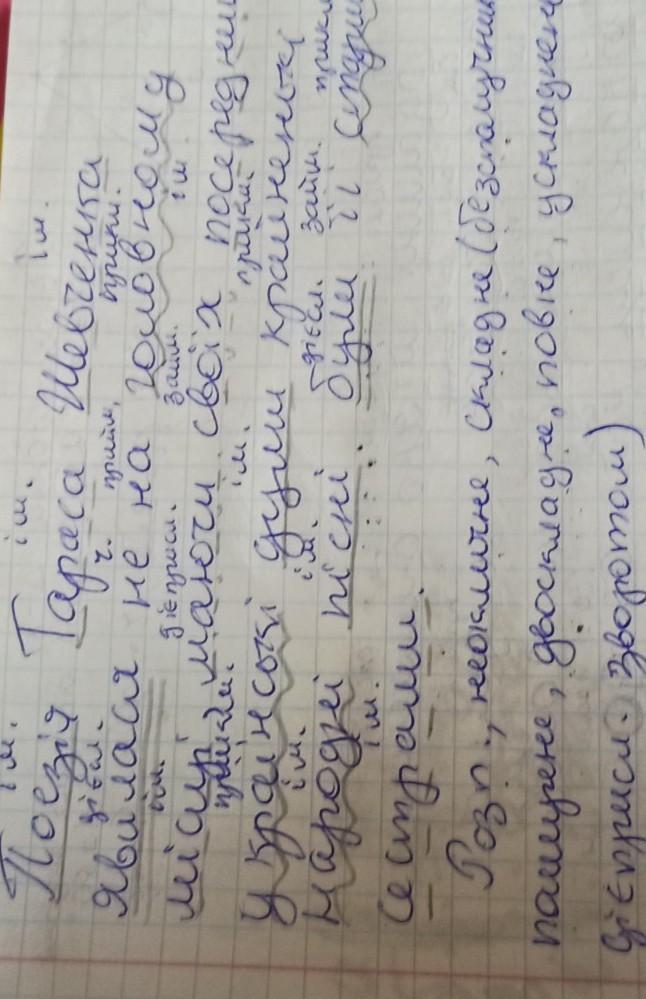 ім. ім. ім.
Поезія Тараса Шевченка
дієсл. ч. прийм. прикм.
явилася не на головному
ім. дієприсл. займ. ім
місці маючи своїх посередни
прикм. ім. прикм.
українські думи
ім. ім. дієсл. займ. прикм
народні пісні були її старш
ім.
сестрами.
Розп., неокличне, складне (безсполучник
поширене, двоскладне, повне, ускладнен
дієприсл. зворотом)